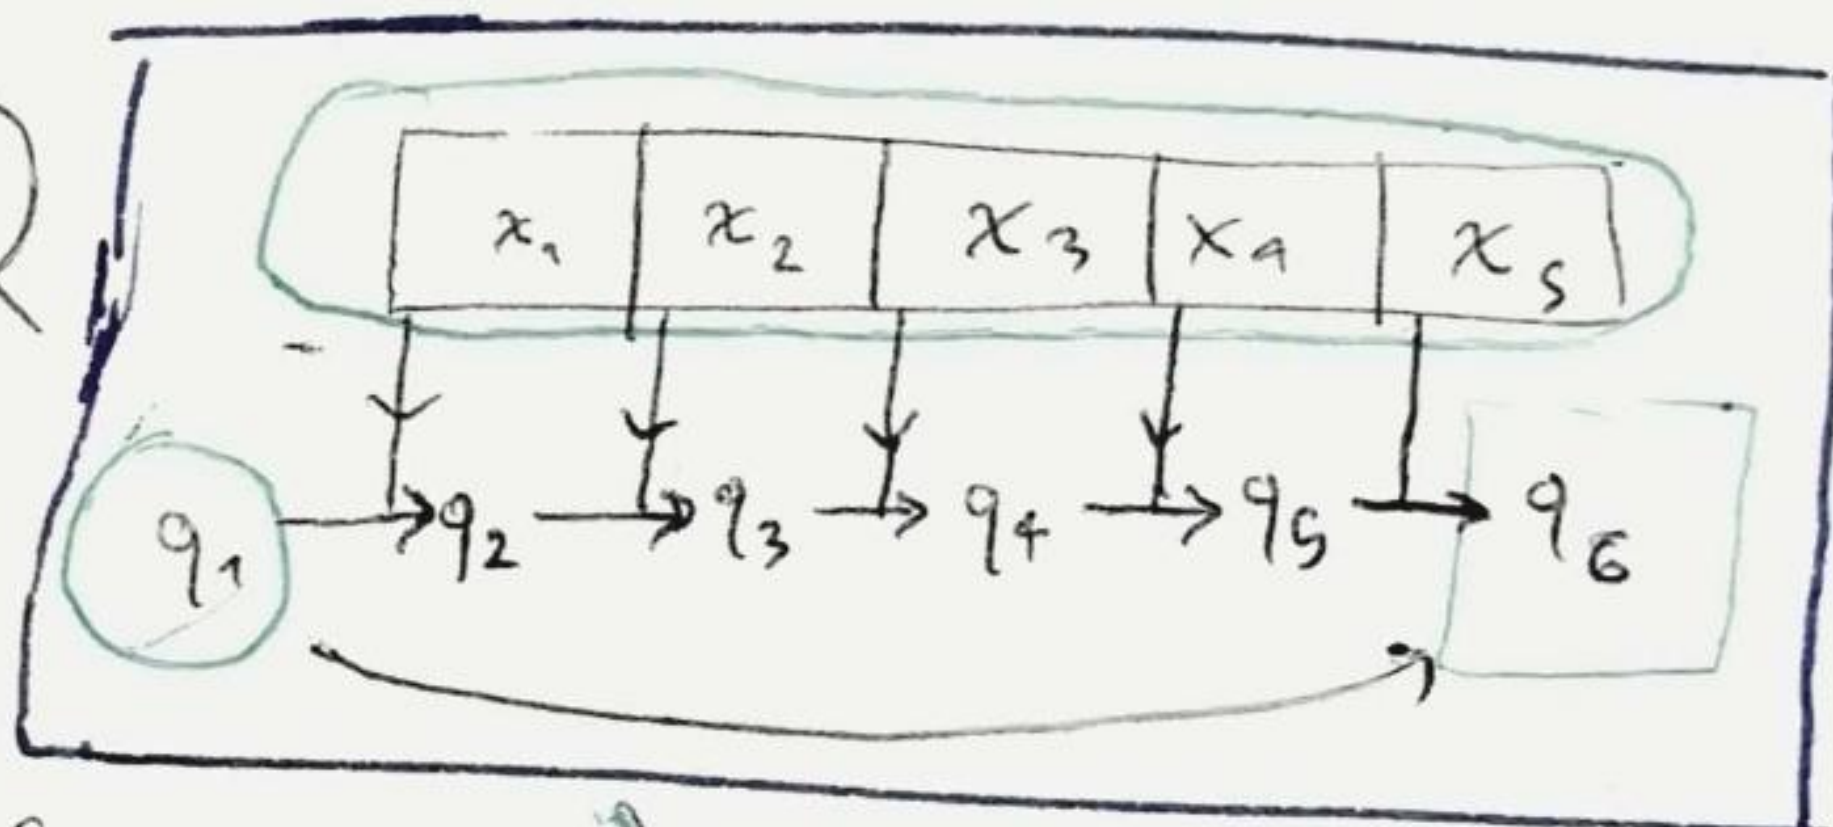 x₁ x₂ x₃ x₄ x₅
q₁ q₂ q₃ q₄ q₅ q₆